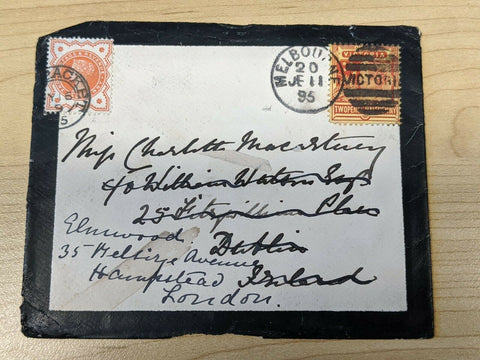 MELBOURNE
20
JE 11
95
VICTORIA
VICTORIA
TWOPENCE
HACKET
5
Miss Charlotte Macartney
c/o William Watson Esqr
25 Fitzwilliam Place
Dublin
Ireland
Elmwood
35 Avenue
Hampstead
London.